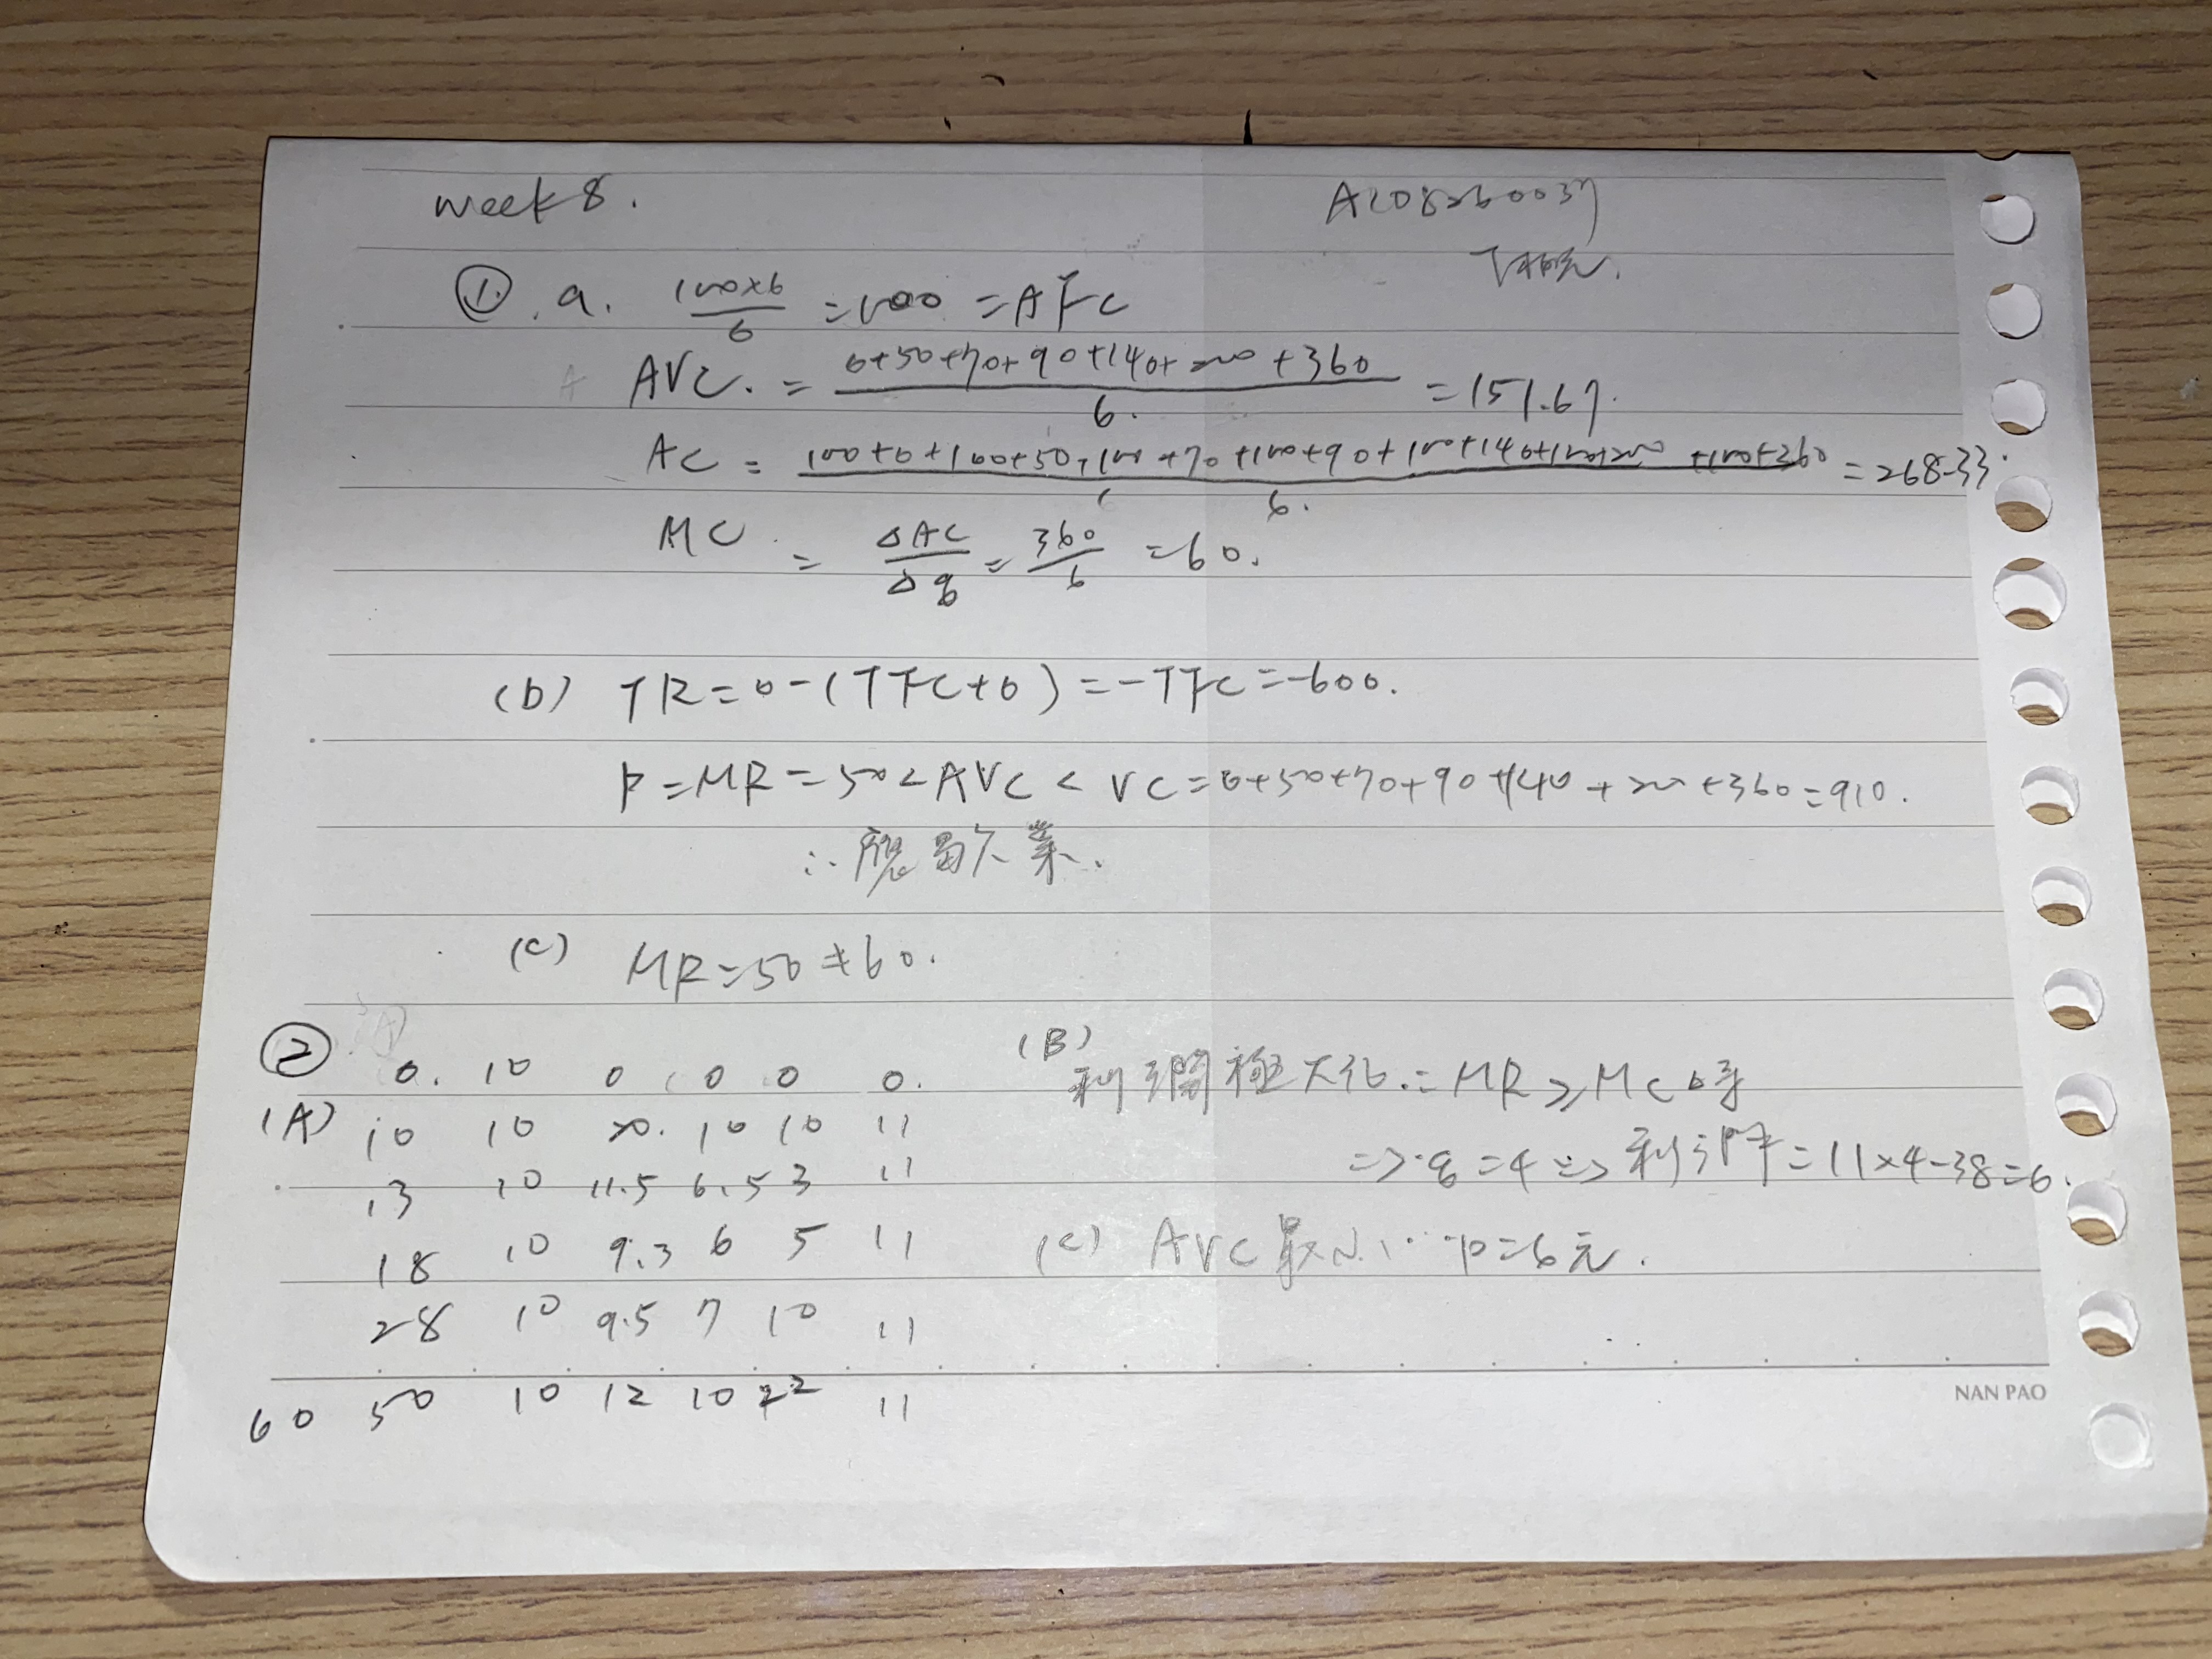 week 8.
A108260037
①. a. 100×6/6 = 100 = AFC
AVC. = 0+50+70+90+140+200+360/6. = 151.67.
AC = 100+0+100+50+100+70+100+90+100+140+100+200+100+360/6. = 268.33.
MC. = ΔAC/Δq = 360/6 = 60.
(b) TR = 0 - (TFC+0) = -TFC = -600.
P = MR = 50 < AVC < VC = 0+50+70+90+140+200+360 = 910.
∴ 應歇業.
(c) MR = 50 ≠ 60.
②
(A)
0. 10 0 0 0 0.
10 10 20. 10 10 11
13 10 11.5 6.5 3 11
18 10 9.3 6 5 11
28 10 9.5 7 10 11
60 50 10 12 10 22 11
(B)
利潤極大化 = MR ≥ MC時
=> q = 4 => 利潤 = 11×4-38 = 6.
(C) AVC最小, ∴ P = 6元.
NAN PAO